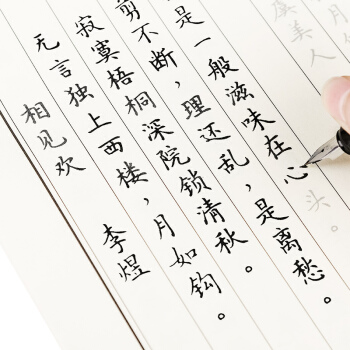 相见欢 李煜
无言独上西楼,月如钩。
寂寞梧桐深院锁清秋。
剪不断,理还乱,是离愁。
是一般滋味在心头。
虞美人